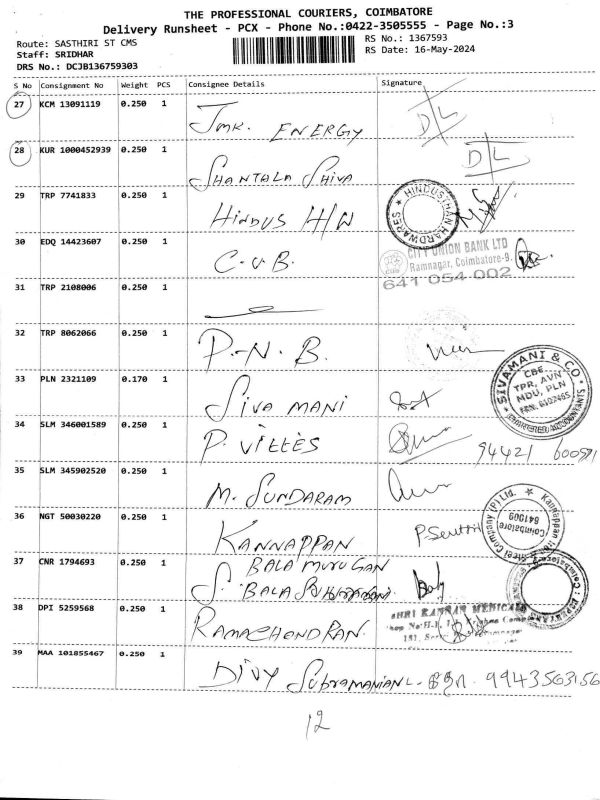 THE PROFESSIONAL COURIERS, COIMBATORE
Delivery Runsheet - PCX - Phone No.:0422-3505555 - Page No.:3
Route: SASTHIRI ST CMS
RS No.: 1367593
Staff: SRIDHAR
RS Date: 16-May-2024
DRS No.: DCJB136759303
S No Consignment No Weight PCS Consignee Details Signature
27 KCM 13091119 0.250 1
JMK. ENERGY
D/L
28 KUR 1000452939 0.250 1
SHANTALA SHIVA
D/L
29 TRP 7741833 0.250 1
HINDUS H/W
HINDUSTHAN HARDWARES
30 EDQ 14423607 0.250 1
C.U.B.
CITY UNION BANK LTD
Ramnagar, Coimbatore-9.
641 054 002
31 TRP 2108006 0.250 1
32 TRP 8062066 0.250 1
P.N.B.
33 PLN 2321109 0.170 1
SIVA MANI
SIVAMANI & CO.
CBE,
TPR, AVN
MDU, PLN
CHARTERED ACCOUNTANTS
34 SLM 346001589 0.250 1
P. VILLES
94421
35 SLM 345902520 0.250 1
M. SUNDARAM
36 NGT 50030220 0.250 1
KANNAPPAN
P.Senthil
Kannappan
Steel Company (P) Ltd.
Coimbatore
641009
37 CNR 1794693 0.250 1
BALA MURUGAN
S. BALA
38 DPI 5259568 0.250 1
RAMACHONDRAN.
SHRI KANNAN MEDICALS
39 MAA 101855467 0.250 1
DIVY Subramanian
9943563156
12